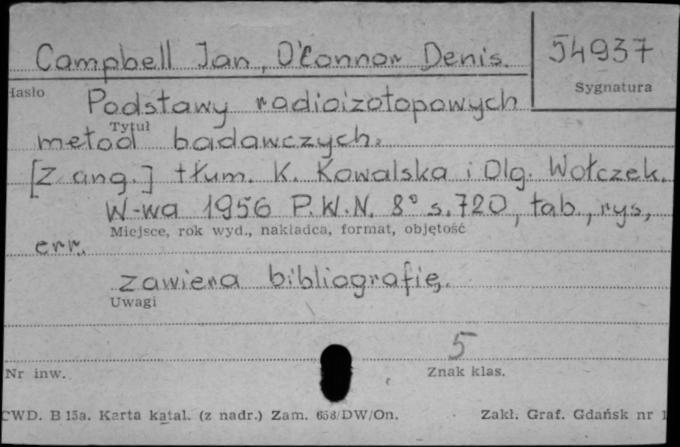 Campbell Jan, O'Connor Denis.
54937
Hasło
Sygnatura
Podstawy radioizotopowych
Tytuł
metod badawczych.
[Z ang.] tłum. K. Kowalska i Olg. Wołczek.
W-wa 1956 P.W.N. 8° s. 720, tab., rys.,
Miejsce, rok wyd., nakładca, format, objętość
err.
zawiera bibliografię.
Uwagi
5
Nr inw.
Znak klas.
CWD. B 15a. Karta katal. (z nadr.) Zam. 658/DW/On.
Zakł. Graf. Gdańsk nr 1